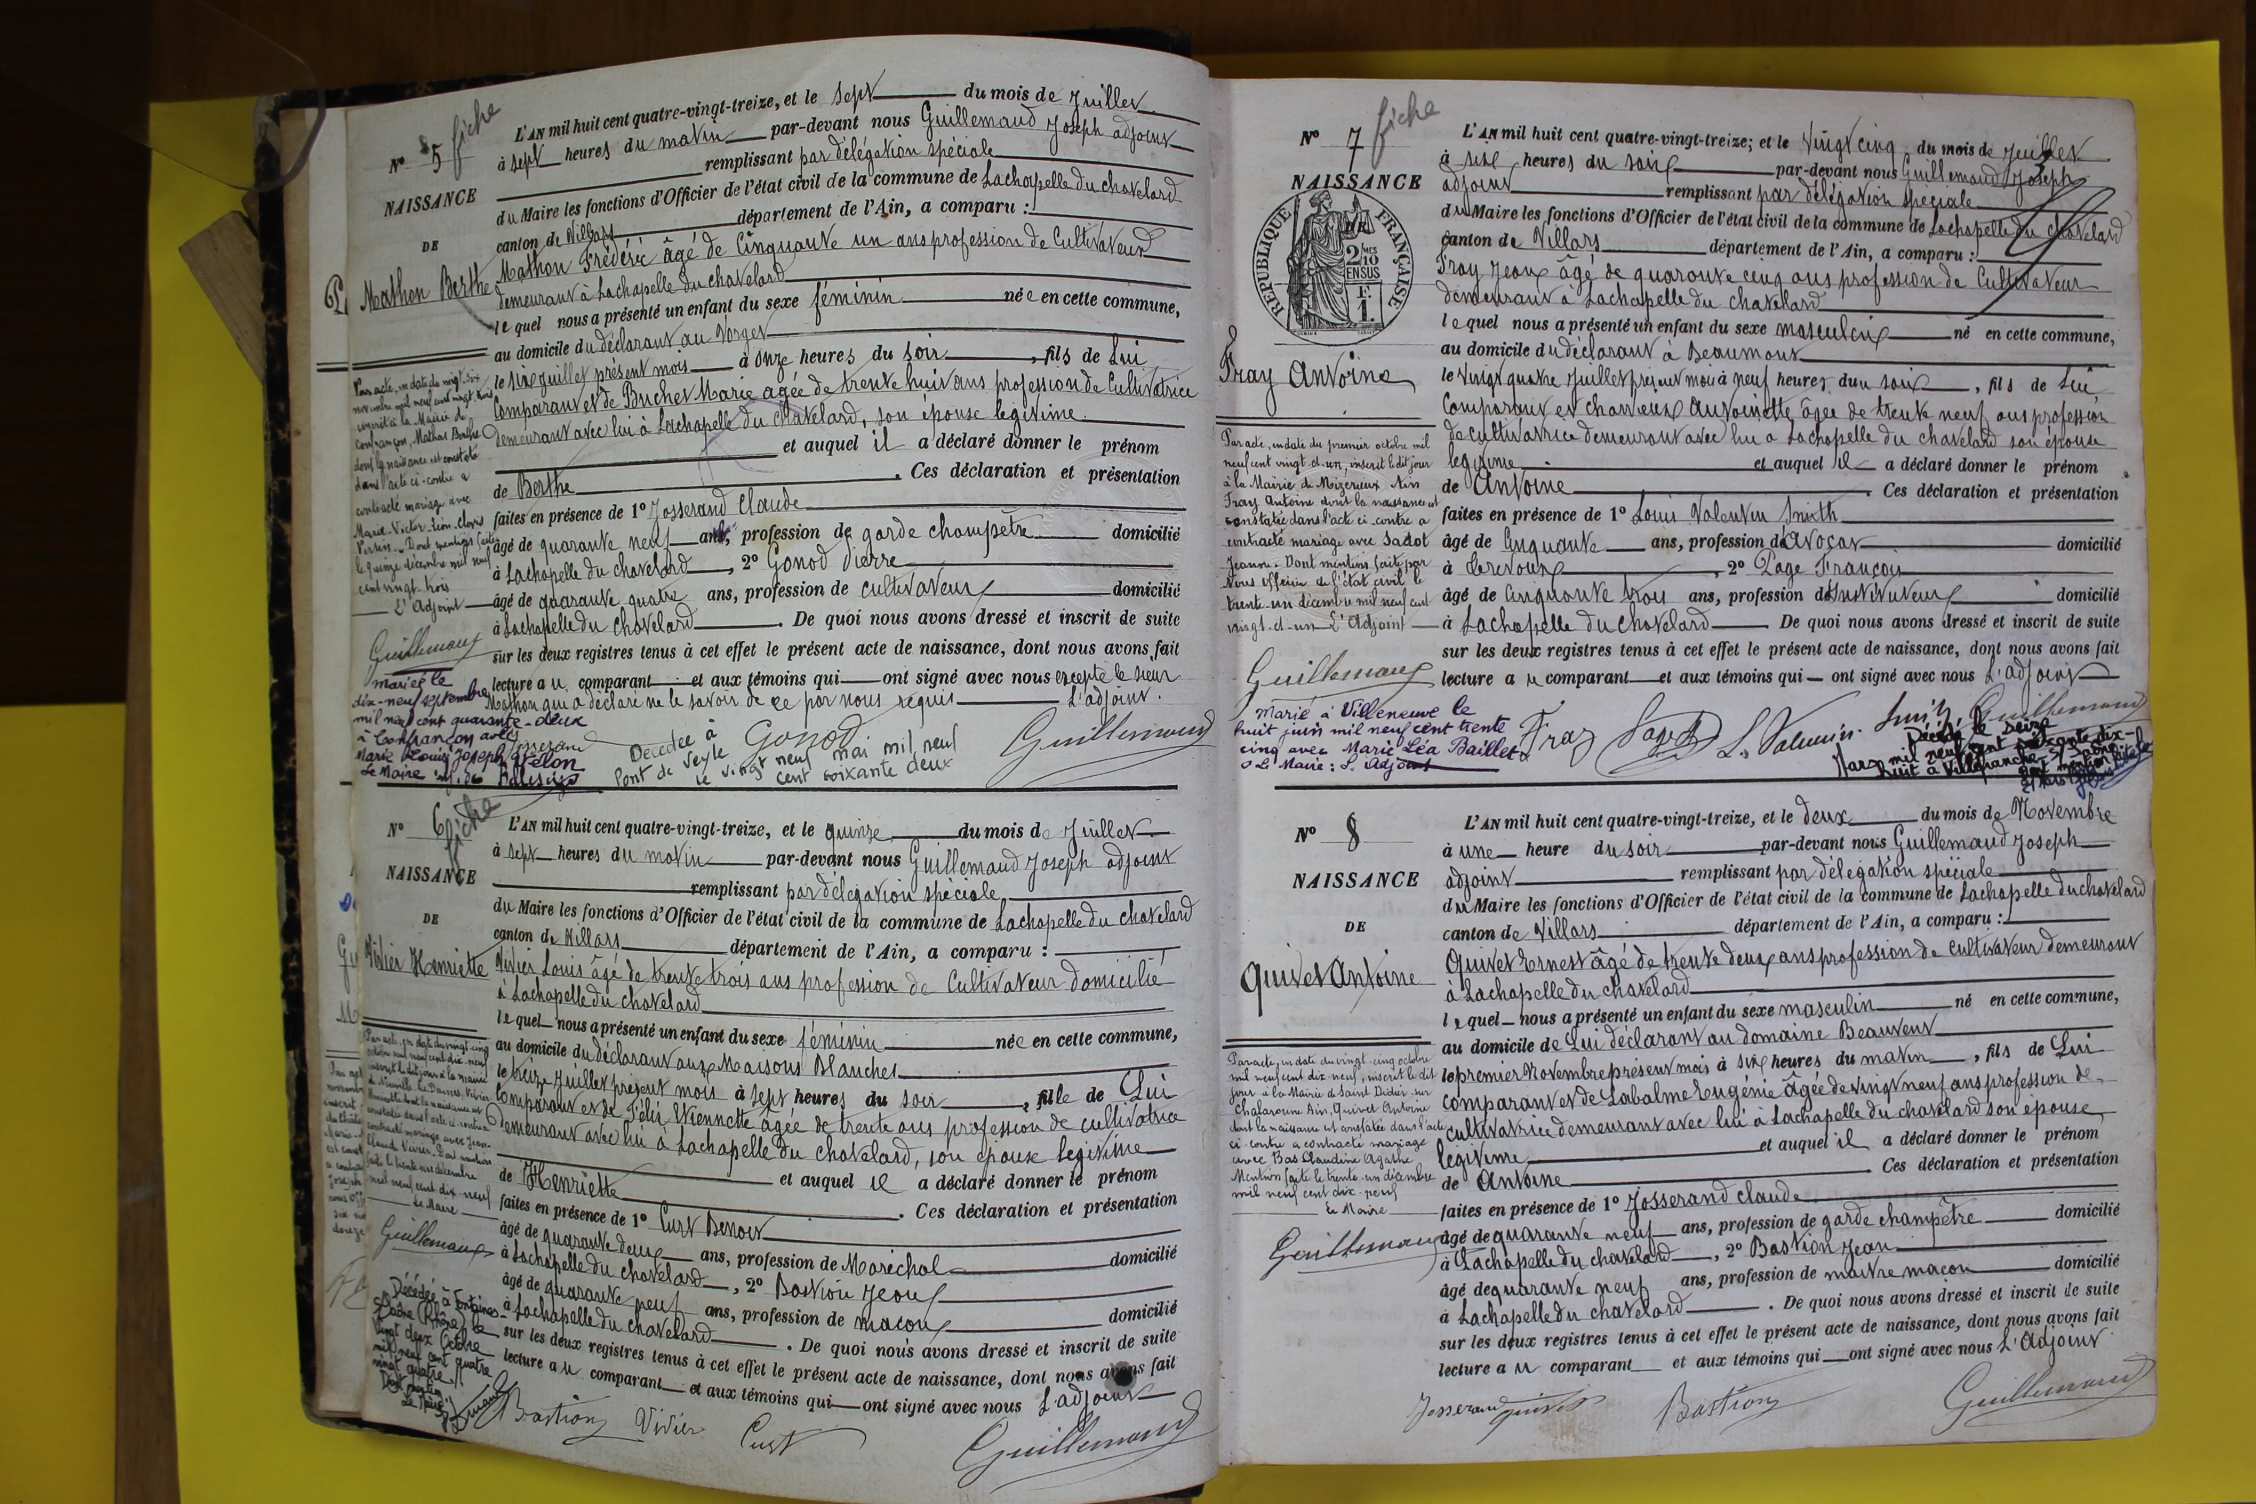 N° 5 fiche
NAISSANCE
DE
Mathon Berthe
L'AN mil huit cent quatre-vingt-treize, et le sept du mois de Juillet
à sept heures du matin par-devant nous Guillemaud Joseph adjoint
remplissant par délégation spéciale
du Maire les fonctions d'Officier de l'état civil de la commune de Lachapelle du chatelard
canton de Villars département de l'Ain, a comparu :
Mathon Frédéric âgé de Cinquante un ans profession de Cultivateur
demeurant à Lachapelle du chatelard
le quel nous a présenté un enfant du sexe féminin née en cette commune,
au domicile du déclarant au Vorget
le six juillet présent mois à onze heures du soir, fils de Lui
Comparant et de Buchet Marie agée de trente huit ans profession de Cultivatrice
demeurant avec lui à Lachapelle du chatelard, son épouse legitime
et auquel il a déclaré donner le prénom
de Berthe. Ces déclaration et présentation
faites en présence de 1° Josserand Claude
âgé de quarante neuf ans, profession de garde champêtre domicilié
à Lachapelle du chatelard, 2° Gonod Pierre
âgé de quarante quatre ans, profession de cultivateur domicilié
à Lachapelle du chatelard. De quoi nous avons dressé et inscrit de suite
sur les deux registres tenus à cet effet le présent acte de naissance, dont nous avons fait
lecture au comparant et aux témoins qui ont signé avec nous excepté le sieur
Mathon qui a déclaré ne le savoir de ce par nous requis L'adjoint.
Josserand Gonod Guillemaud
Par acte en date du vingt-six
novembre mil neuf cent vingt trois
inscrit à la Mairie de
Confrançon, Mathon Berthe
dont la naissance est constatée
dans l'acte ci-contre a
contracté mariage avec
Marie Victor Léon Clovis
Dont mention faite
le quinze décembre mil neuf
cent vingt-trois
L'Adjoint
Guillemaud
mariée le
dix-neuf septembre
mil neuf cent quarante-deux
à Confrançon avec
Marie Louis Joseph Velon
Le Maire
Décédée à
Pont de Veyle
le vingt neuf mai mil neuf
cent soixante deux
N° 6 fiche
NAISSANCE
DE
Vivier Henriette
L'AN mil huit cent quatre-vingt-treize, et le quinze du mois de Juillet
à sept heures du matin par-devant nous Guillemaud Joseph adjoint
remplissant par délégation spéciale
du Maire les fonctions d'Officier de l'état civil de la commune de Lachapelle du chatelard
canton de Villars département de l'Ain, a comparu :
Vivier Louis âgé de trente trois ans profession de Cultivateur domicilié
à Lachapelle du chatelard
le quel nous a présenté un enfant du sexe féminin née en cette commune,
au domicile du déclarant aux Maisons Blanches
le treize Juillet présent mois à sept heures du soir, fille de Lui
Comparant et de Félix Etiennette âgée de trente ans profession de cultivatrice
demeurant avec lui à Lachapelle du chatelard, son épouse legitime
et auquel il a déclaré donner le prénom
de Henriette. Ces déclaration et présentation
faites en présence de 1° Curt Benoit
âgé de quarante deux ans, profession de Maréchal domicilié
à Lachapelle du chatelard, 2° Bastion Jean
âgé de quarante neuf ans, profession de macon domicilié
à Lachapelle du chatelard. De quoi nous avons dressé et inscrit de suite
sur les deux registres tenus à cet effet le présent acte de naissance, dont nous avons fait
lecture au comparant et aux témoins qui ont signé avec nous L'adjoint
Bastion Vivier Curt Guillemaud
Par acte en date du vingt-cinq
octobre mil neuf cent dix-neuf
inscrit le dit jour à la Mairie
de Neuville les Dames, Vivier
Henriette dont la naissance est
constatée dans l'acte ci-contre a
contracté mariage avec Jean
Claude Vivier. Dont mention
faite le trente un décembre
mil neuf cent dix-neuf
Le Maire
Guillemaud
Décédée à Fontaines-
s/Saône (Rhône) le
Vingt deux Octobre
mil neuf cent quatre
vingt quatre
Dont mention
Le Maire
N° 7 fiche
NAISSANCE
DE
REPUBLIQUE FRANÇAISE
2/10 MES
EN SUS
F.
1.
Fray Antoine
L'AN mil huit cent quatre-vingt-treize; et le Vingt cinq du mois de Juillet
à six heures du soir par-devant nous Guillemaud Joseph
adjoint remplissant par délégation spéciale
du Maire les fonctions d'Officier de l'état civil de la commune de Lachapelle du chatelard
canton de Villars département de l'Ain, a comparu :
Fray Jean âgé de quarante cinq ans profession de Cultivateur
demeurant à Lachapelle du chatelard
le quel nous a présenté un enfant du sexe masculin né en cette commune,
au domicile du déclarant à Beaumont
le Vingt quatre Juillet présent mois à neuf heures du soir, fils de Lui
Comparant et Antoinette âgée de trente neuf ans profession
de cultivatrice demeurant avec lui à Lachapelle du chatelard son épouse
legitime et auquel il a déclaré donner le prénom
de Antoine. Ces déclaration et présentation
faites en présence de 1° Louis Valentin Smith
âgé de Cinquante ans, profession d'Avocat domicilié
à Trevoux, 2° Page François
âgé de Cinquante trois ans, profession d'Instituteur domicilié
à Lachapelle du chatelard De quoi nous avons dressé et inscrit de suite
sur les deux registres tenus à cet effet le présent acte de naissance, dont nous avons fait
lecture au comparant et aux témoins qui ont signé avec nous L'adjoint
Fray Page L. Valentin Smith Guillemaud
Par acte, en date du premier octobre mil
neuf cent vingt-et-un, inscrit le dit jour
à la Mairie de Mizerieux Ain
Fray Antoine dont la naissance est
constatée dans l'acte ci-contre a
contracté mariage avec Sadot
Jeanne. Dont mention faite par
Nous officier de l'état civil le
trente-un décembre mil neuf cent
vingt-et-un L'Adjoint
Guillemaud
Marié à Villeneuve le
huit juin mil neuf cent trente
cinq avec Marie Léa Baillet
Le Maire : L'Adjoint
Décédé le seize
Mars mil neuf cent soixante dix-
huit à Villefranche s/ Saône
dont mention
N° 8
NAISSANCE
DE
Quivet Antoine
L'AN mil huit cent quatre-vingt-treize, et le deux du mois de Novembre
à une heure du soir par-devant nous Guillemaud Joseph
adjoint remplissant par délégation spéciale
du Maire les fonctions d'Officier de l'état civil de la commune de Lachapelle du chatelard
canton de Villars département de l'Ain, a comparu :
Quivet Ernest âgé de trente deux ans profession de cultivateur demeurant
à Lachapelle du chatelard
le quel nous a présenté un enfant du sexe masculin né en cette commune,
au domicile de Lui déclarant au domaine Beauvent
le premier Novembre présent mois à six heures du matin, fils de Lui
comparant et de Labalme Eugénie âgée de vingt neuf ans profession de
cultivatrice demeurant avec lui à Lachapelle du chatelard son épouse
legitime et auquel il a déclaré donner le prénom
de Antoine. Ces déclaration et présentation
faites en présence de 1° Josserand claude
âgé de quarante neuf ans, profession de garde champêtre domicilié
à Lachapelle du chatelard, 2° Bastion Jean
âgé de quarante neuf ans, profession de maitre macon domicilié
à Lachapelle du chatelard. De quoi nous avons dressé et inscrit de suite
sur les deux registres tenus à cet effet le présent acte de naissance, dont nous avons fait
lecture au comparant et aux témoins qui ont signé avec nous L'Adjoint
Josserand Quivet Bastion Guillemaud
Par acte, en date du vingt-cinq octobre
mil neuf cent dix-neuf, inscrit le dit
jour à la Mairie de Saint Didier sur
Chalaronne Ain, Quivet Antoine
dont la naissance est constatée dans l'acte
ci-contre a contracté mariage
avec Bas Claudine Agathe
Mention faite le trente-un décembre
mil neuf cent dix-neuf
Le Maire
Guillemaud